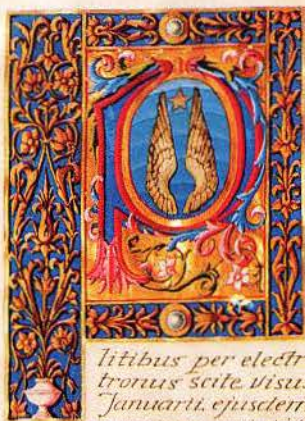 litibus per elect
tronus scite visu
Januarii. ejusdem